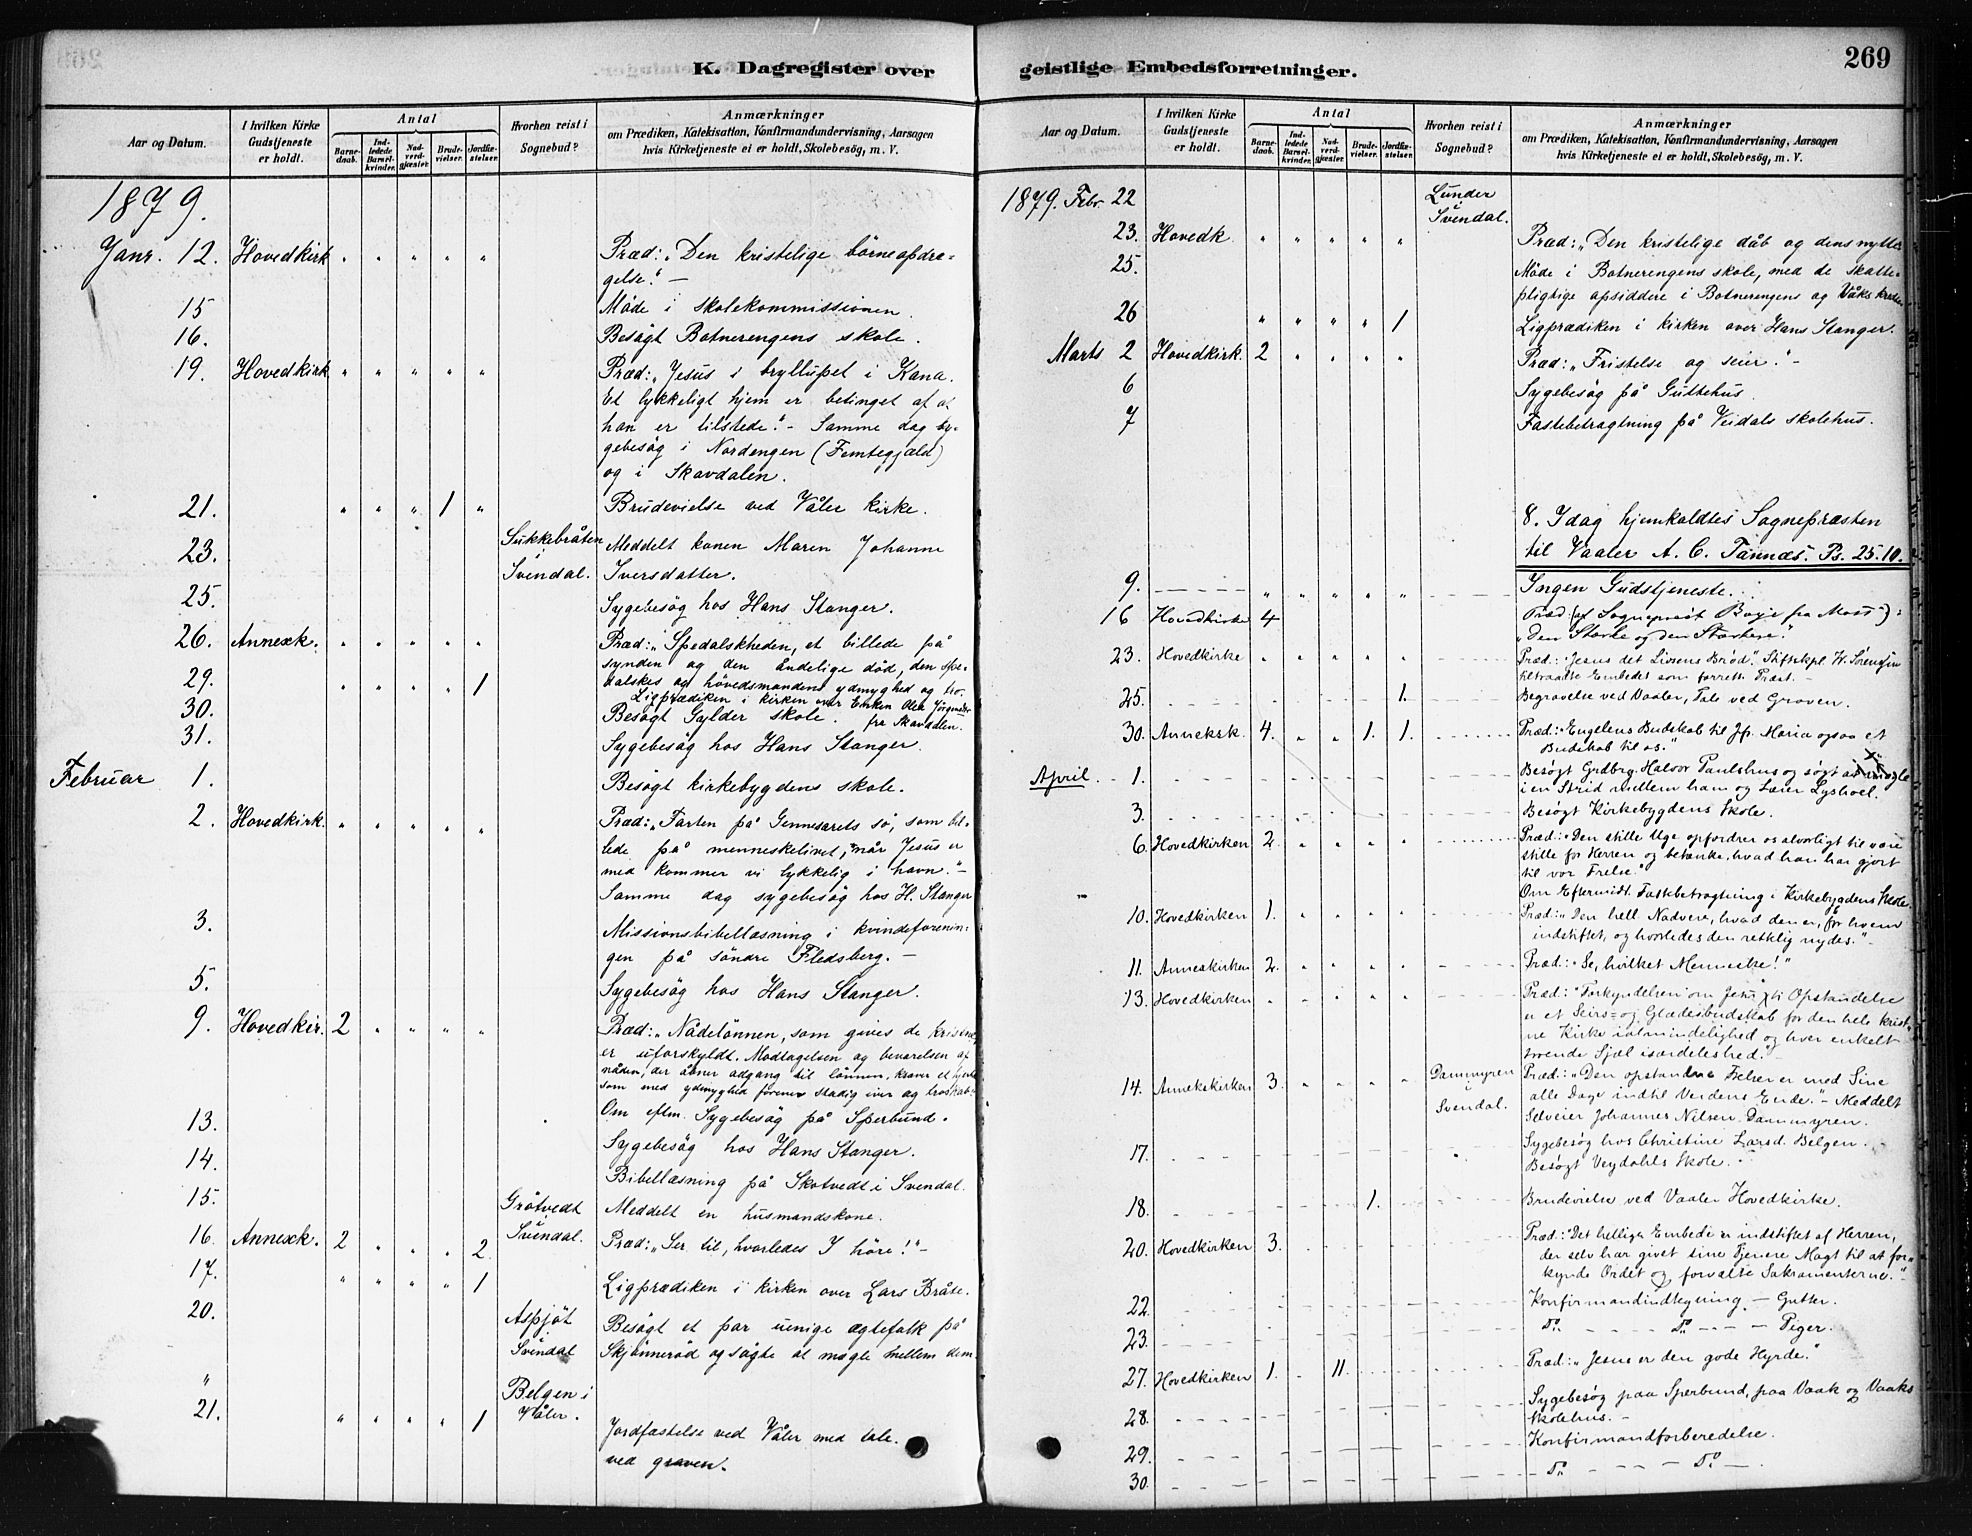 K. Dagregister over
Aar og Datum.
I hvilken Kirke Gudstjeneste er holdt.
Antal
Barnedaab.
Indledede Barselkvinder.
Nadverdgjæster.
Brudevielser.
Jordfæstelser.
Hvorhen reist i Sognebud?
Anmærkninger
om Prædiken, Katekisation, Konfirmandundervisning, Aarsagen
hvis Kirketjeneste ei er holdt, Skolebesøg, m. V.
1879.
Janr. 12. Hovedkirk " " " " " Præd: "Den kristelige börneopdra-
gelse". —
15 Möde i skolekommissionen.
16. Besögt Botnerengens skole.
19. Hovedkirk " " " " " Præd: "Jesus i bryllupet i Kana.
Et lykkeligt hjem er betinget af at
han er tilstede". - Samme dag sy-
gebesög i Nordengen (Femtegjæld)
og i Skavdalen.
21. " " " 1 " Brudevielse ved Våler kirke.
23. Sukkebråten i Svendal. Meddelt konen Maren Johanne
Iversdatter.
25. Sygebesög hos Hans Stanger.
26. Annexk. " " " " " Præd: "Spedalskheden, et billede på
synden og den åndelige död, den spe-
dalskes og hövedsmandens ydmyghed og tro.
29. " " " " 1 Ligprædiken i kirken over Enken Olea Jörgensdtr
fra Skavdalen.
30. Besögt Gylder skole.
31. Sygebesög hos Hans Stanger.
Februar 1. Besögt kirkebygdens skole.
2. Hovedkirk. " " " " " Præd: "Farten på Gennesarets sö, som bil-
lede på menneskelivet, når Jesus er
med kommer vi lykkelig i havn." -
Samme dag sygebesög hos H. Stanger
3. Missionsbibellæsning i kvindeforenin-
gen på söndre Fledsberg. -
5. Sygebesög hos Hans Stanger.
9. Hovedkir. 2 " " " " Præd: "Nådelönnen, som gives de kristne,
er uforskyldt. Modtagelsen og bevarelsen af
nåden, der åbner adgang til lönnen, kræver et hjerte
som med ydmyghed forener stadig iver og troskab."
Om eftm. Sygebesög på Sperbund.
13. Sygebesög hos Hans Stanger.
14. Bibellæsning på Skotvedt i Svendal.
15. Gråtvedt i Svendal. Meddelt en husmandskone.
16. Annexk. 2 " " " 2 Præd: "Ser til, hvorledes I höre!" -
17. " " " " 1 Ligprædiken i kirken over Lars Bråte.
20. Aspjöt i Svendal Besögt et par uenige ægtefolk på
Skjönneröd og sögte at mægle mellem dem.
" Belgen i Våler.
21. " " " " 1 Jordfæstelse ved Våler med tale
ved graven.
geistlige Embedsforretninger.
269
Aar og Datum.
I hvilken Kirke Gudstjeneste er holdt.
Antal
Barnedaab.
Indledede Barselkvinder.
Nadverdgjæster.
Brudevielser.
Jordfæstelser.
Hvorhen reist i Sognebud?
Anmærkninger
om Prædiken, Katekisation, Konfirmandundervisning, Aarsagen
hvis Kirketjeneste ei er holdt, Skolebesøg, m. V.
1879. Febr. 22 Lunder i Svendal.
23. Hovedk. " " " " " Præd: "Den kristelige dåb og dens nytte
25. Möde i Botnerengens skole, med de skatte-
pligtige opsiddere i Botnerengens og Våks kreds.
26 " " " " 1 Ligprædiken i kirken over Hans Stanger.
Marts 2 Hovedkirk. 2 " " " " Præd: "Fristelse og seier." -
6 Sygebesög på Guttehus.
7 Fastebetragtning på Veidals skolehus.
8. Idag hjemkaldtes Sognepræsten
til Vaaler A. C. Tannæs. Ps. 25.10.
9. " " " " " Ingen Gudstjeneste.
16 Hovedkirke 4 Præd (af Sognepræst Boye fra Moss):
"Den Stærke og den Stærkere."
23. Hovedkirke " " " " " Præd: "Jesus det Livsens Brød". Stiftskpl. W. Sørensen
tiltraadte Embedet som forrett. Præst. -
25. 1. Begravelse ved Vaaler, Tale ved Graven.
30. Anneksk. 4. " " 1. 1. Præd: "Engelens Budskab til Jfr. Maria ogsaa et
Budskab til os."
April 1. Besøgt Grdbrg. Halvor Paulshus og søgt at mægle
i en Strid mellem ham og Lærer Lyshoel.
3. Besøgt Kirkebygdens Skole.
6. Hovedkirken 2. " " " " Præd: "Den stille Uge opfordrer os alvorligt til være
stille for Herren og betænke, hvad han har gjort
til vor Frelse."
Om Eftermidt. Fastebetragtning i Kirkebygdens Skole.
10. Hovedkirken 1. " " " " Præd: "Den hell Nadvere, hvad den er, for hvem
indstiftet, og hvorledes den rettelig nydes." -
11. Annexkirken 2. " " " " Præd: "Se, hvilket Menneske!"
13. Hovedkirken " " " " " Præd: "Forkyndelsen om Jesu Xti Opstandelse
er et Seirs- og Glædesbudskab for den hele krist-
ne Kirke i almindelighed og hver enkelt
troende Sjæl isærdeleshed. -
14. Annekskirken 3. " " " " Dammyren i Svendal. Præd: "Den opstandne Frelser er med Sine
alle Dage indtil Verdens Ende." - Meddelt
Selveier Johannes Nilsen Dammyren.
17. Sygebesøg hos Christine Larsd. Belgen.
Besøgt Veydahls Skole.
18. 1. Brudevielse ved Vaaler Hovedkirke.
20. Hovedkirken 3. Præd: "Det hellige Embede er indstiftet af Herren,
der selv har givet sine Tjenere Magt til at for-
kynde Ordet og forvalte Sakramenterne." -
22. Konfirmandindtegning - Gutter.
23. Do. - - - Do. - - - Piger.
27. Hovedkirken 1. " 11. Præd: "Jesus er den gode Hyrde."
28. Sygebesøg paa Sperbund, paa Vaak og Vaaks
Skolehus. -
29. Konfirmandforberedelse.
30. Do. - - - Do. -